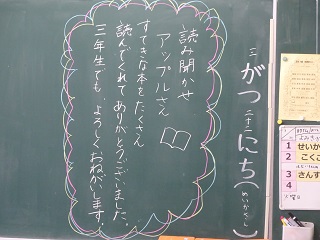 二がつ二十二にち(めいかくし)
読み聞かせ
アップルさん
すてきな本をたくさん
読んでくれてありがとうございました。
三年生でも、よろしくおねがいします!
1 せいか
2 こくご
3 さんす
4